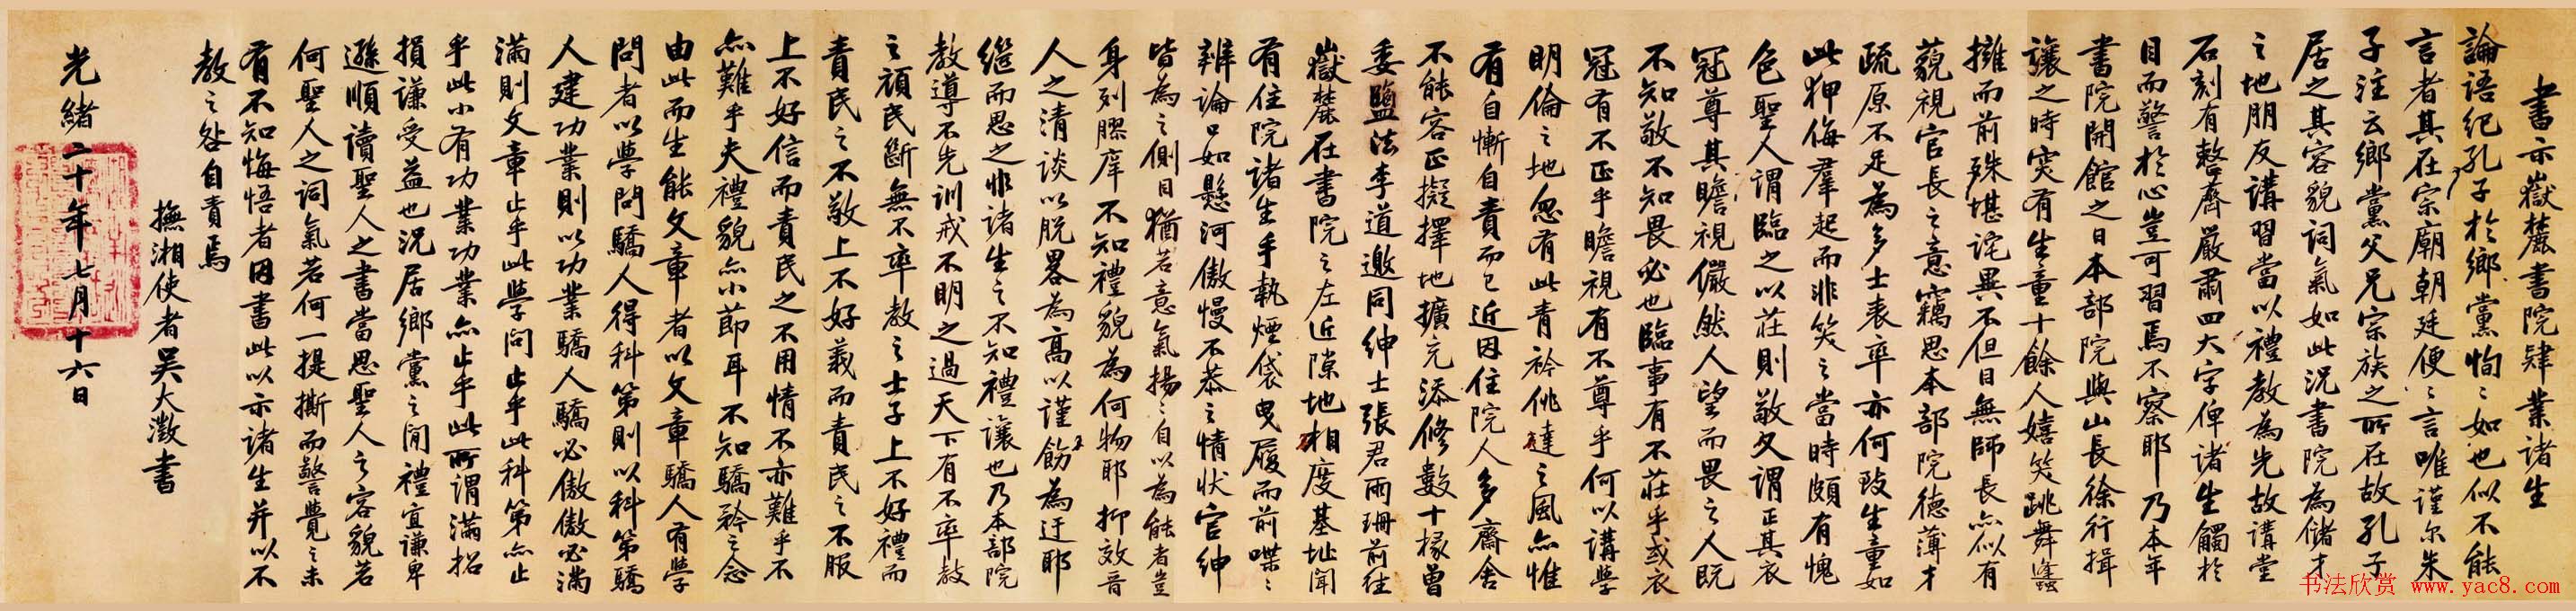 書示嶽麓書院肄業諸生
論語紀孔子於鄉黨恂〻如也似不能
言者其在宗廟朝廷便〻言唯謹尔朱
子注云鄉黨父兄宗族之所在故孔子
居之其容貌詞氣如此況書院為儲才
之地朋友講習當以禮教為先故講堂
石刻有整齊嚴肅四大字俾諸生觸於
目而警於心豈可習焉不察耶乃本年
書院開館之日本部院與山長徐行揖
讓之時突有生童十餘人嬉笑跳舞蠭
擁而前殊堪詫異不但目無師長亦似有
藐視官長之意竊思本部院德薄才
疏原不足為多士表率亦何致生童如
此狎侮羣起而非笑之當時頗有愧
色聖人謂臨之以莊則敬又謂正其衣
冠尊其瞻視儼然人望而畏之人既
不知敬不知畏必也臨事有不莊乎或衣
冠有不正乎瞻視有不尊乎何以講學
明倫之地忽有此青衿佻達之風亦惟
有自慚自責而已近因住院人多齋舍
不能容正擬擇地擴充添修數十椽曾
委鹽法李道邀同紳士張君雨珊前往
嶽麓在書院之左近隙地相度基址聞
有住院諸生手執煙袋曳履而前喋〻
辨論口如懸河傲慢不恭之情狀官紳
皆為之側目猶若意氣揚〻自以為能者豈
身列膠庠不知禮貌為何物耶抑效晉
人之清談以脫畧為高以謹飭為迂耶
繼而思之非諸生之不知禮讓也乃本部院
教導不先訓戒不明之過天下有不率教
之頑民斷無不率教之士子上不好禮而
責民之不敬上不好義而責民之不服
上不好信而責民之不用情不亦難乎不
亦難乎夫禮貌亦小節耳不知驕矜之念
由此而生能文章者以文章驕人有學
問者以學問驕人得科第則以科第驕
人建功業則以功業驕人驕必傲傲必滿
滿則文章止乎此學問止乎此科第亦止
乎此小有功業功業亦止乎此所謂滿招
損謙受益也況居鄉黨之間禮宜謙卑
遜順讀聖人之書當思聖人之容貌若
何聖人之詞氣若何一提撕而警覺之未
有不知悔悟者因書此以示諸生并以不
教之咎自責焉
撫湘使者吳大澂書
光緒二十年七月十六日
书法欣赏 www.yac8.com